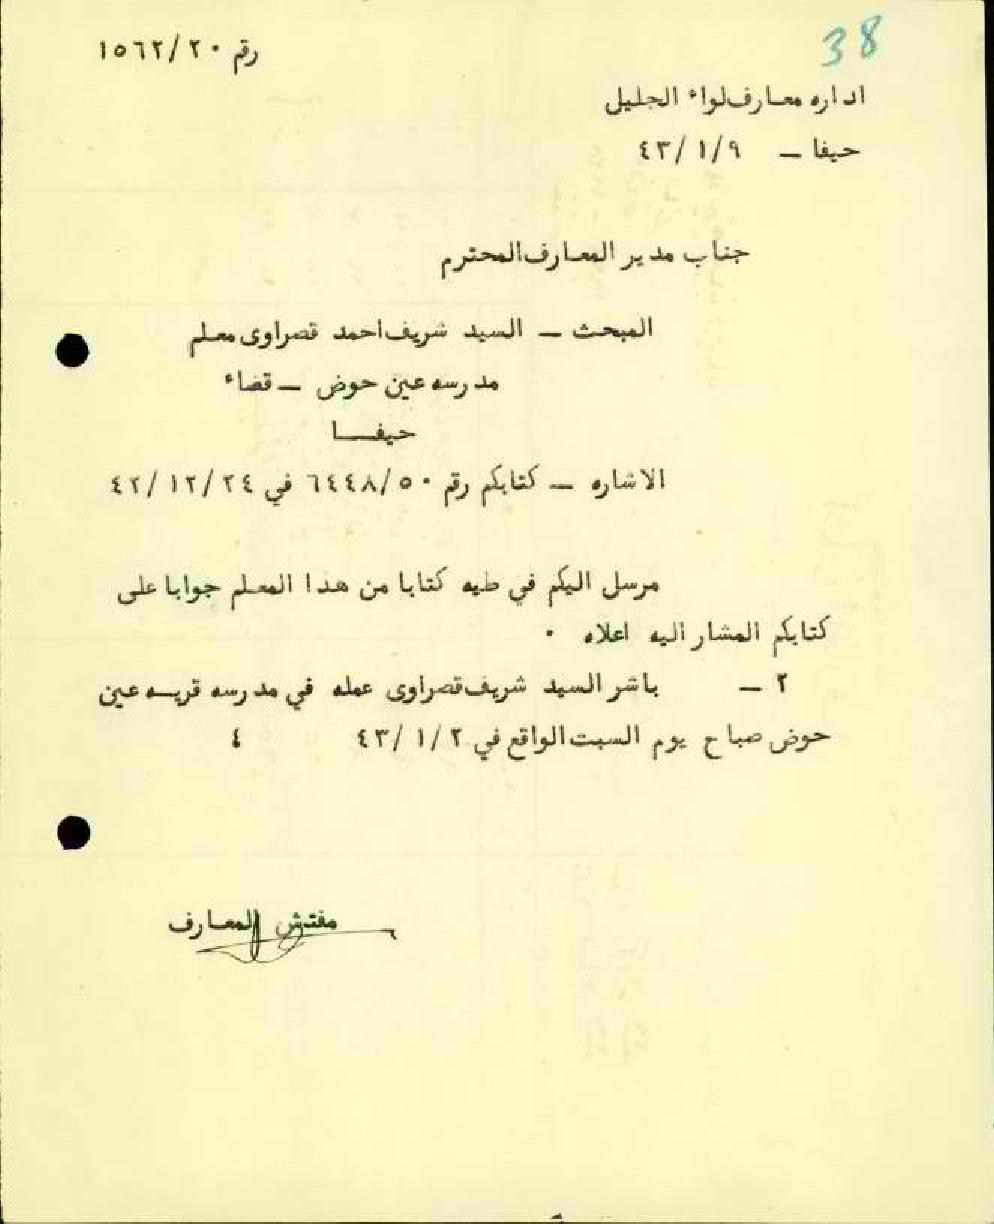 38
رقم ١٥٦٢/٢٠
اداره معارف لواء الجليل
حيفا – ٤٣/١/٩
جناب مدير المعارف المحترم
المبحث – السيد شريف احمد قصراوى معلم
مدرسه عين حوض – قضاء
حيفا
الاشاره – كتابكم رقم ٦٤٤٨/٥٠ في ٤٢/١٢/٢٤
مرسل اليكم في طيه كتابا من هذا المعلم جوابا على
كتابكم المشار اليه اعلاه ٠
٢ – باشر السيد شريف قصراوى عمله في مدرسه قريه عين
حوض صباح يوم السبت الواقع في ٤٣/١/٢ ٤
مفتش المعارف